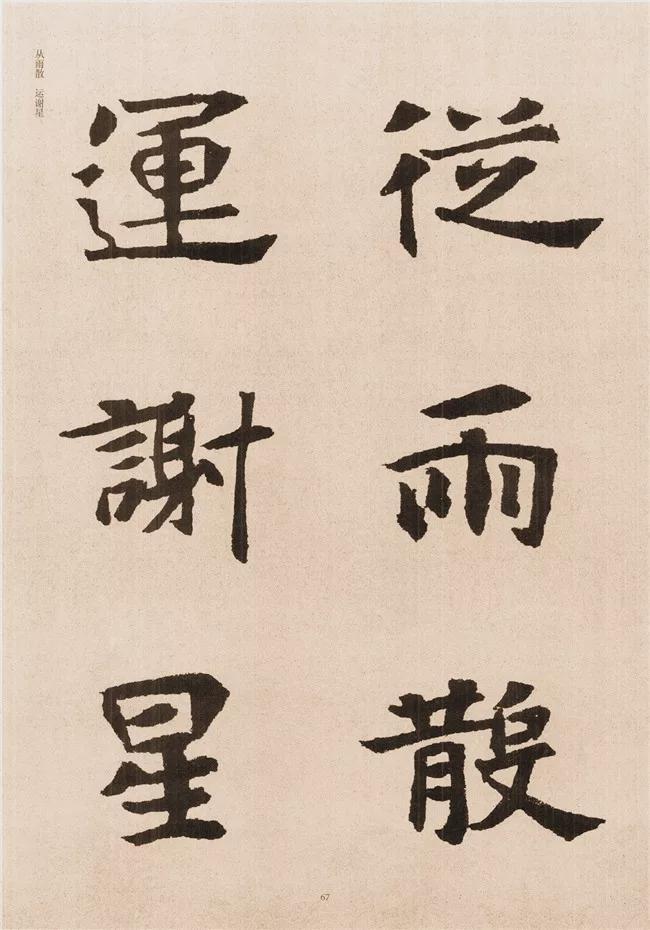 从雨散 运谢星
従雨散
運謝星
67